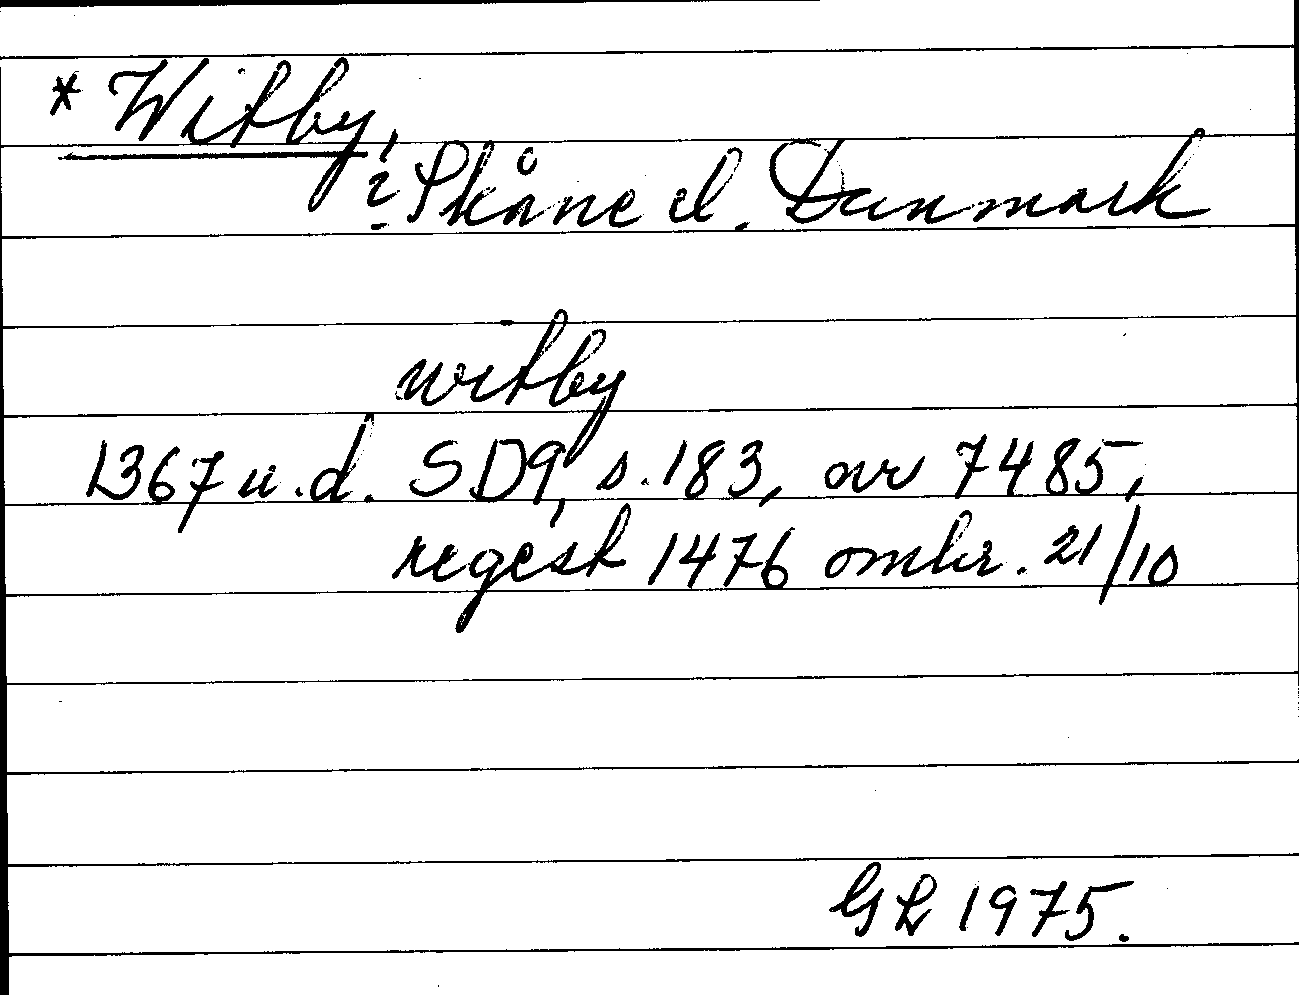 * Witby,
? Skåne el. Danmark
witby
1367 u.d. SD9, s. 183, nr 7485,
regest 1476 omkr. 21/10
GL 1975.